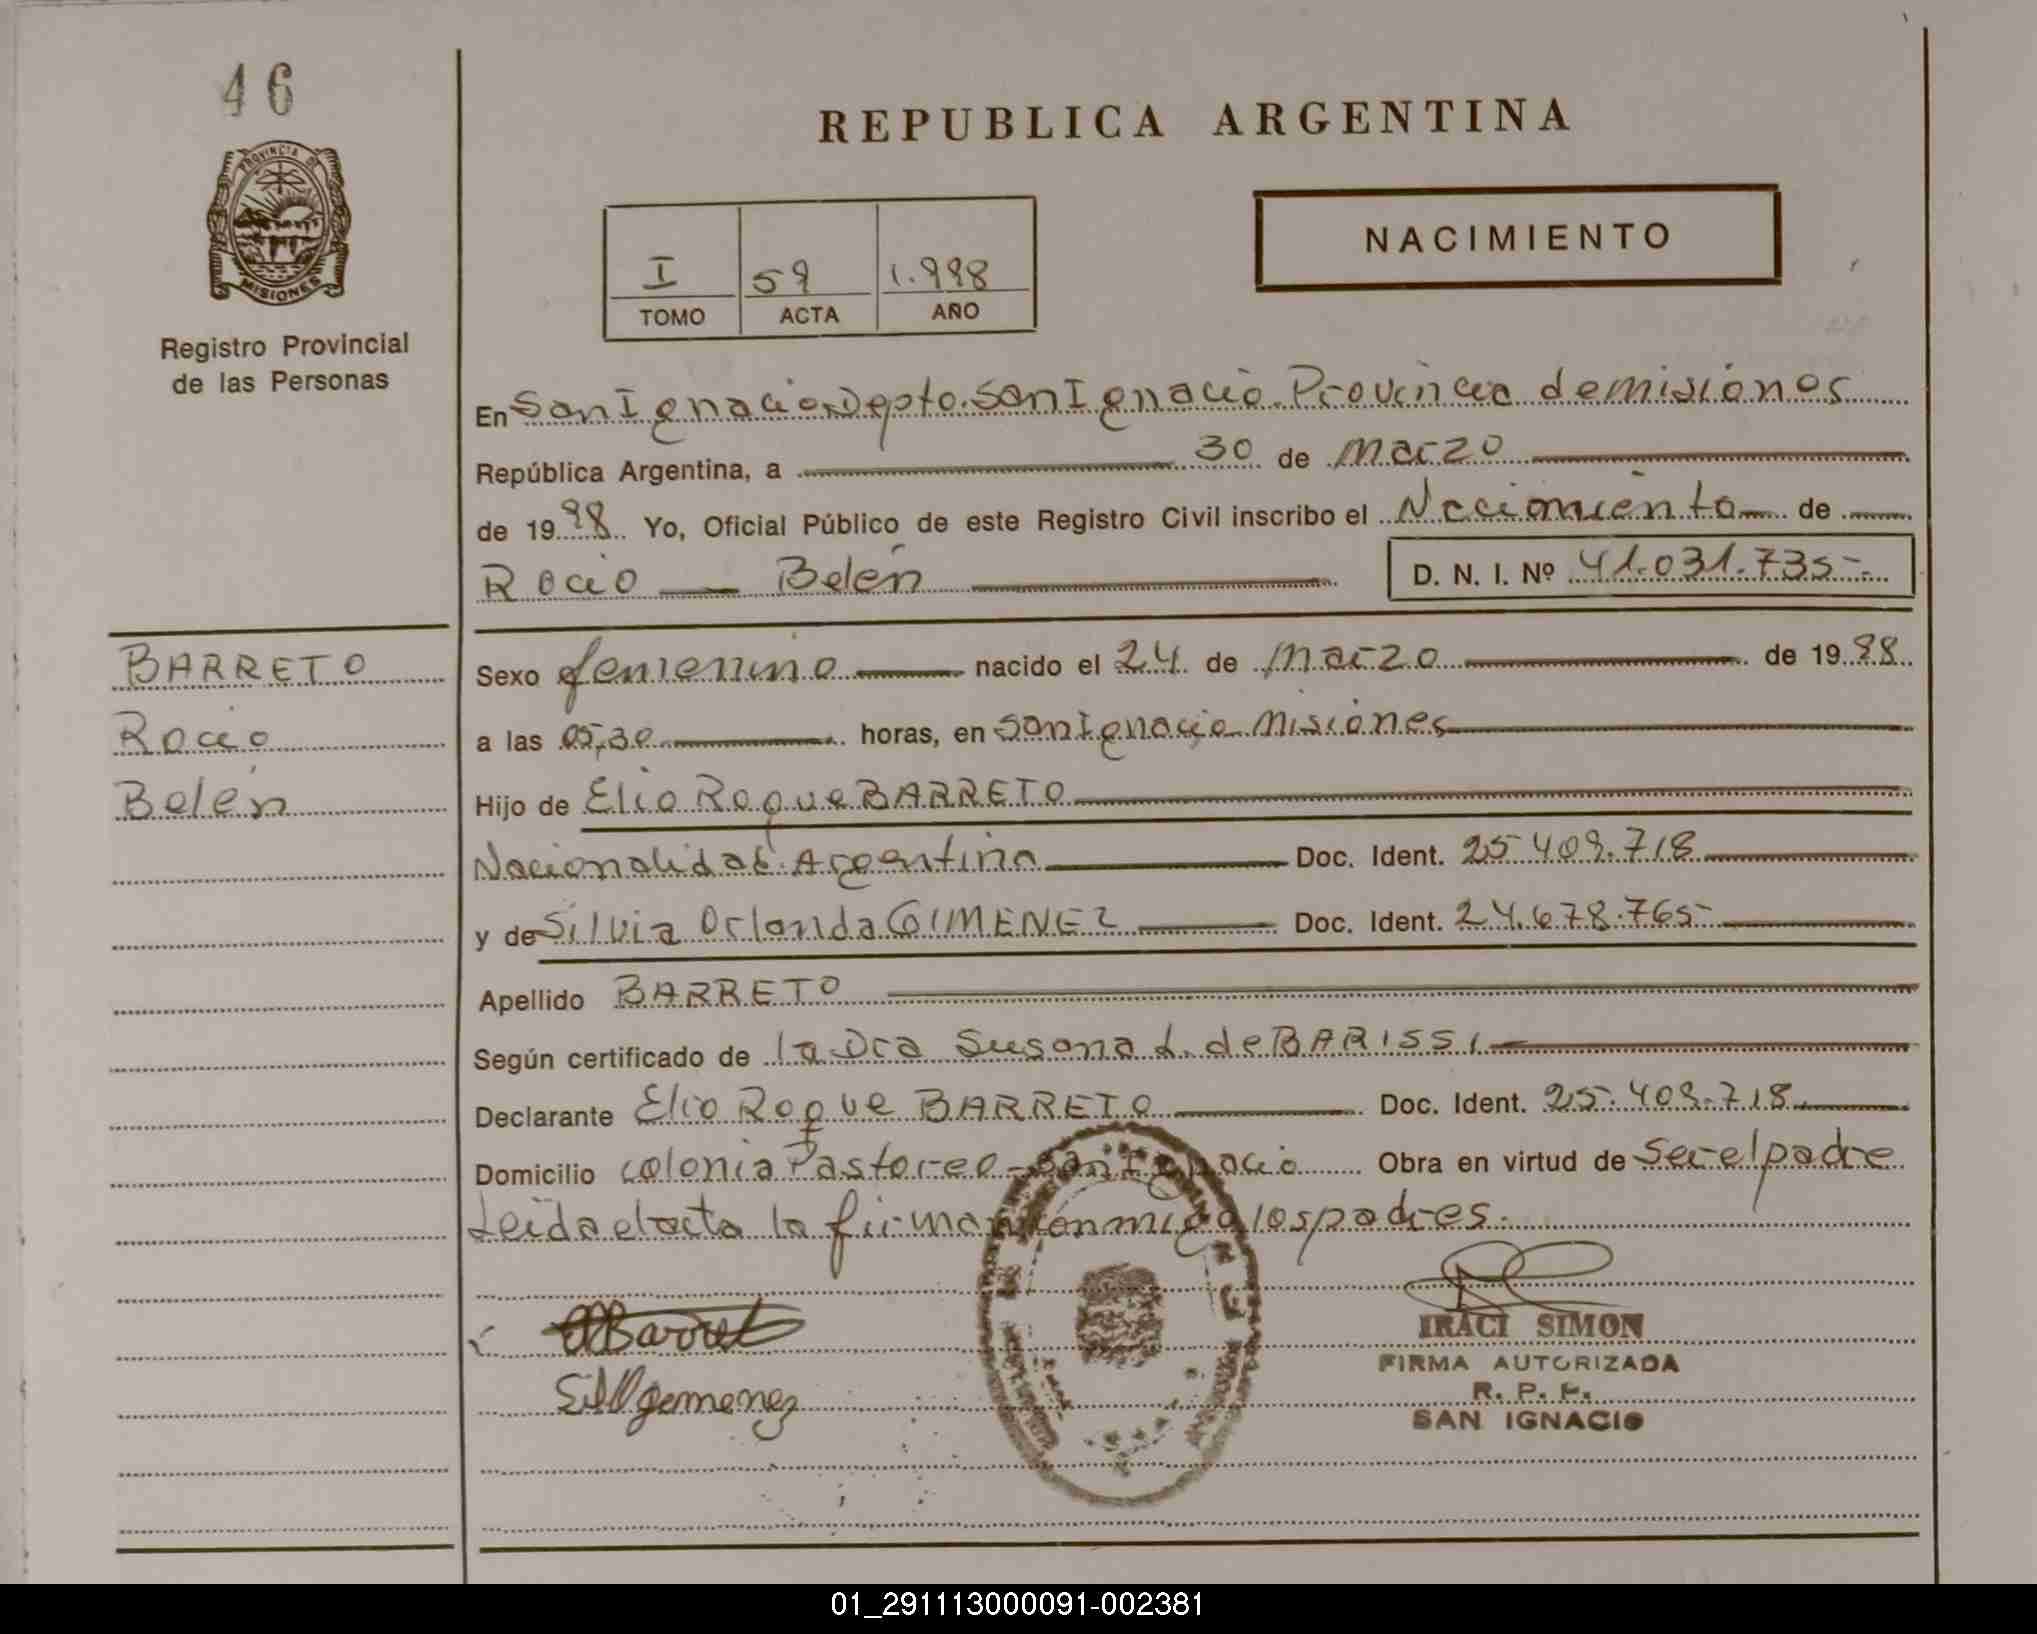 46
REPUBLICA ARGENTINA
PROVINCIA DE
MISIONES
Registro Provincial
de las Personas
I 59 1.998
TOMO ACTA AÑO
NACIMIENTO
En San Ignacio, Depto. San Ignacio. Provincia de misiones
República Argentina, a 30 de Marzo
de 1998 Yo, Oficial Público de este Registro Civil inscribo el Nacimiento de
Rocio Belén D. N. I. Nº 41.031.735-
BARRETO
Rocio
Belén
Sexo femenino nacido el 24 de Marzo de 1998
a las 05,30 horas, en San Ignacio Misiones
Hijo de Elio Roque BARRETO
Nacionalidad Argentina Doc. Ident. 25.409.718
y de Silvia Orlanda GIMENEZ Doc. Ident. 24.678.765-
Apellido BARRETO
Según certificado de la Dra Susana L. de BARISSI
Declarante Elio Roque BARRETO Doc. Ident. 25.409.718
Domicilio colonia Pastoreo - San Ignacio Obra en virtud de ser el padre
Leida el acta la firman conmigo los padres.
Barreto
Sil O gimenez
IRACI SIMON
FIRMA AUTORIZADA
R. P. P.
SAN IGNACIO
01_291113000091-002381